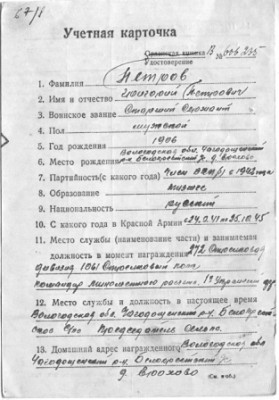 67/1
Учетная карточка
Орденская книжка В № 606235
Удостоверение
1. Фамилия Петров
2. Имя и отчество Григорий Петрович
3. Воинское звание Старший Сержант
4. Пол мужской
5. Год рождения 1906
6. Место рождения Вологодская обл. Чагодощенский
р-н Белокрестский д.
7. Партийность (с какого года) Член ВКП(б) с 1942 года
8. Образование низшее
9. Национальность русский
10. С какого года в Красной Армии с 24.0 .41 по 25.10.45
11. Место службы (наименование части) и занимаемая
должность в момент награждения 272 Стрелковая
дивизия 1061 Стрелковый полк
командир минометного расчета 1го Украинский фр
12. Место службы и должность в настоящее время
Вологодская обл. Чагодощенский р-н. Белокрестский
с/сов. Председатель
13. Домашний адрес награжденного Вологодская об
Чагодощенский р-н. Белокрестский
д.
См. на об.